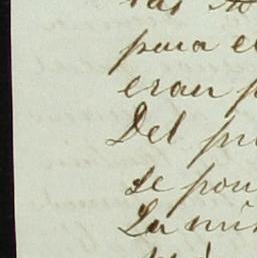 para e
eran p
Del pr
se pon
La mis